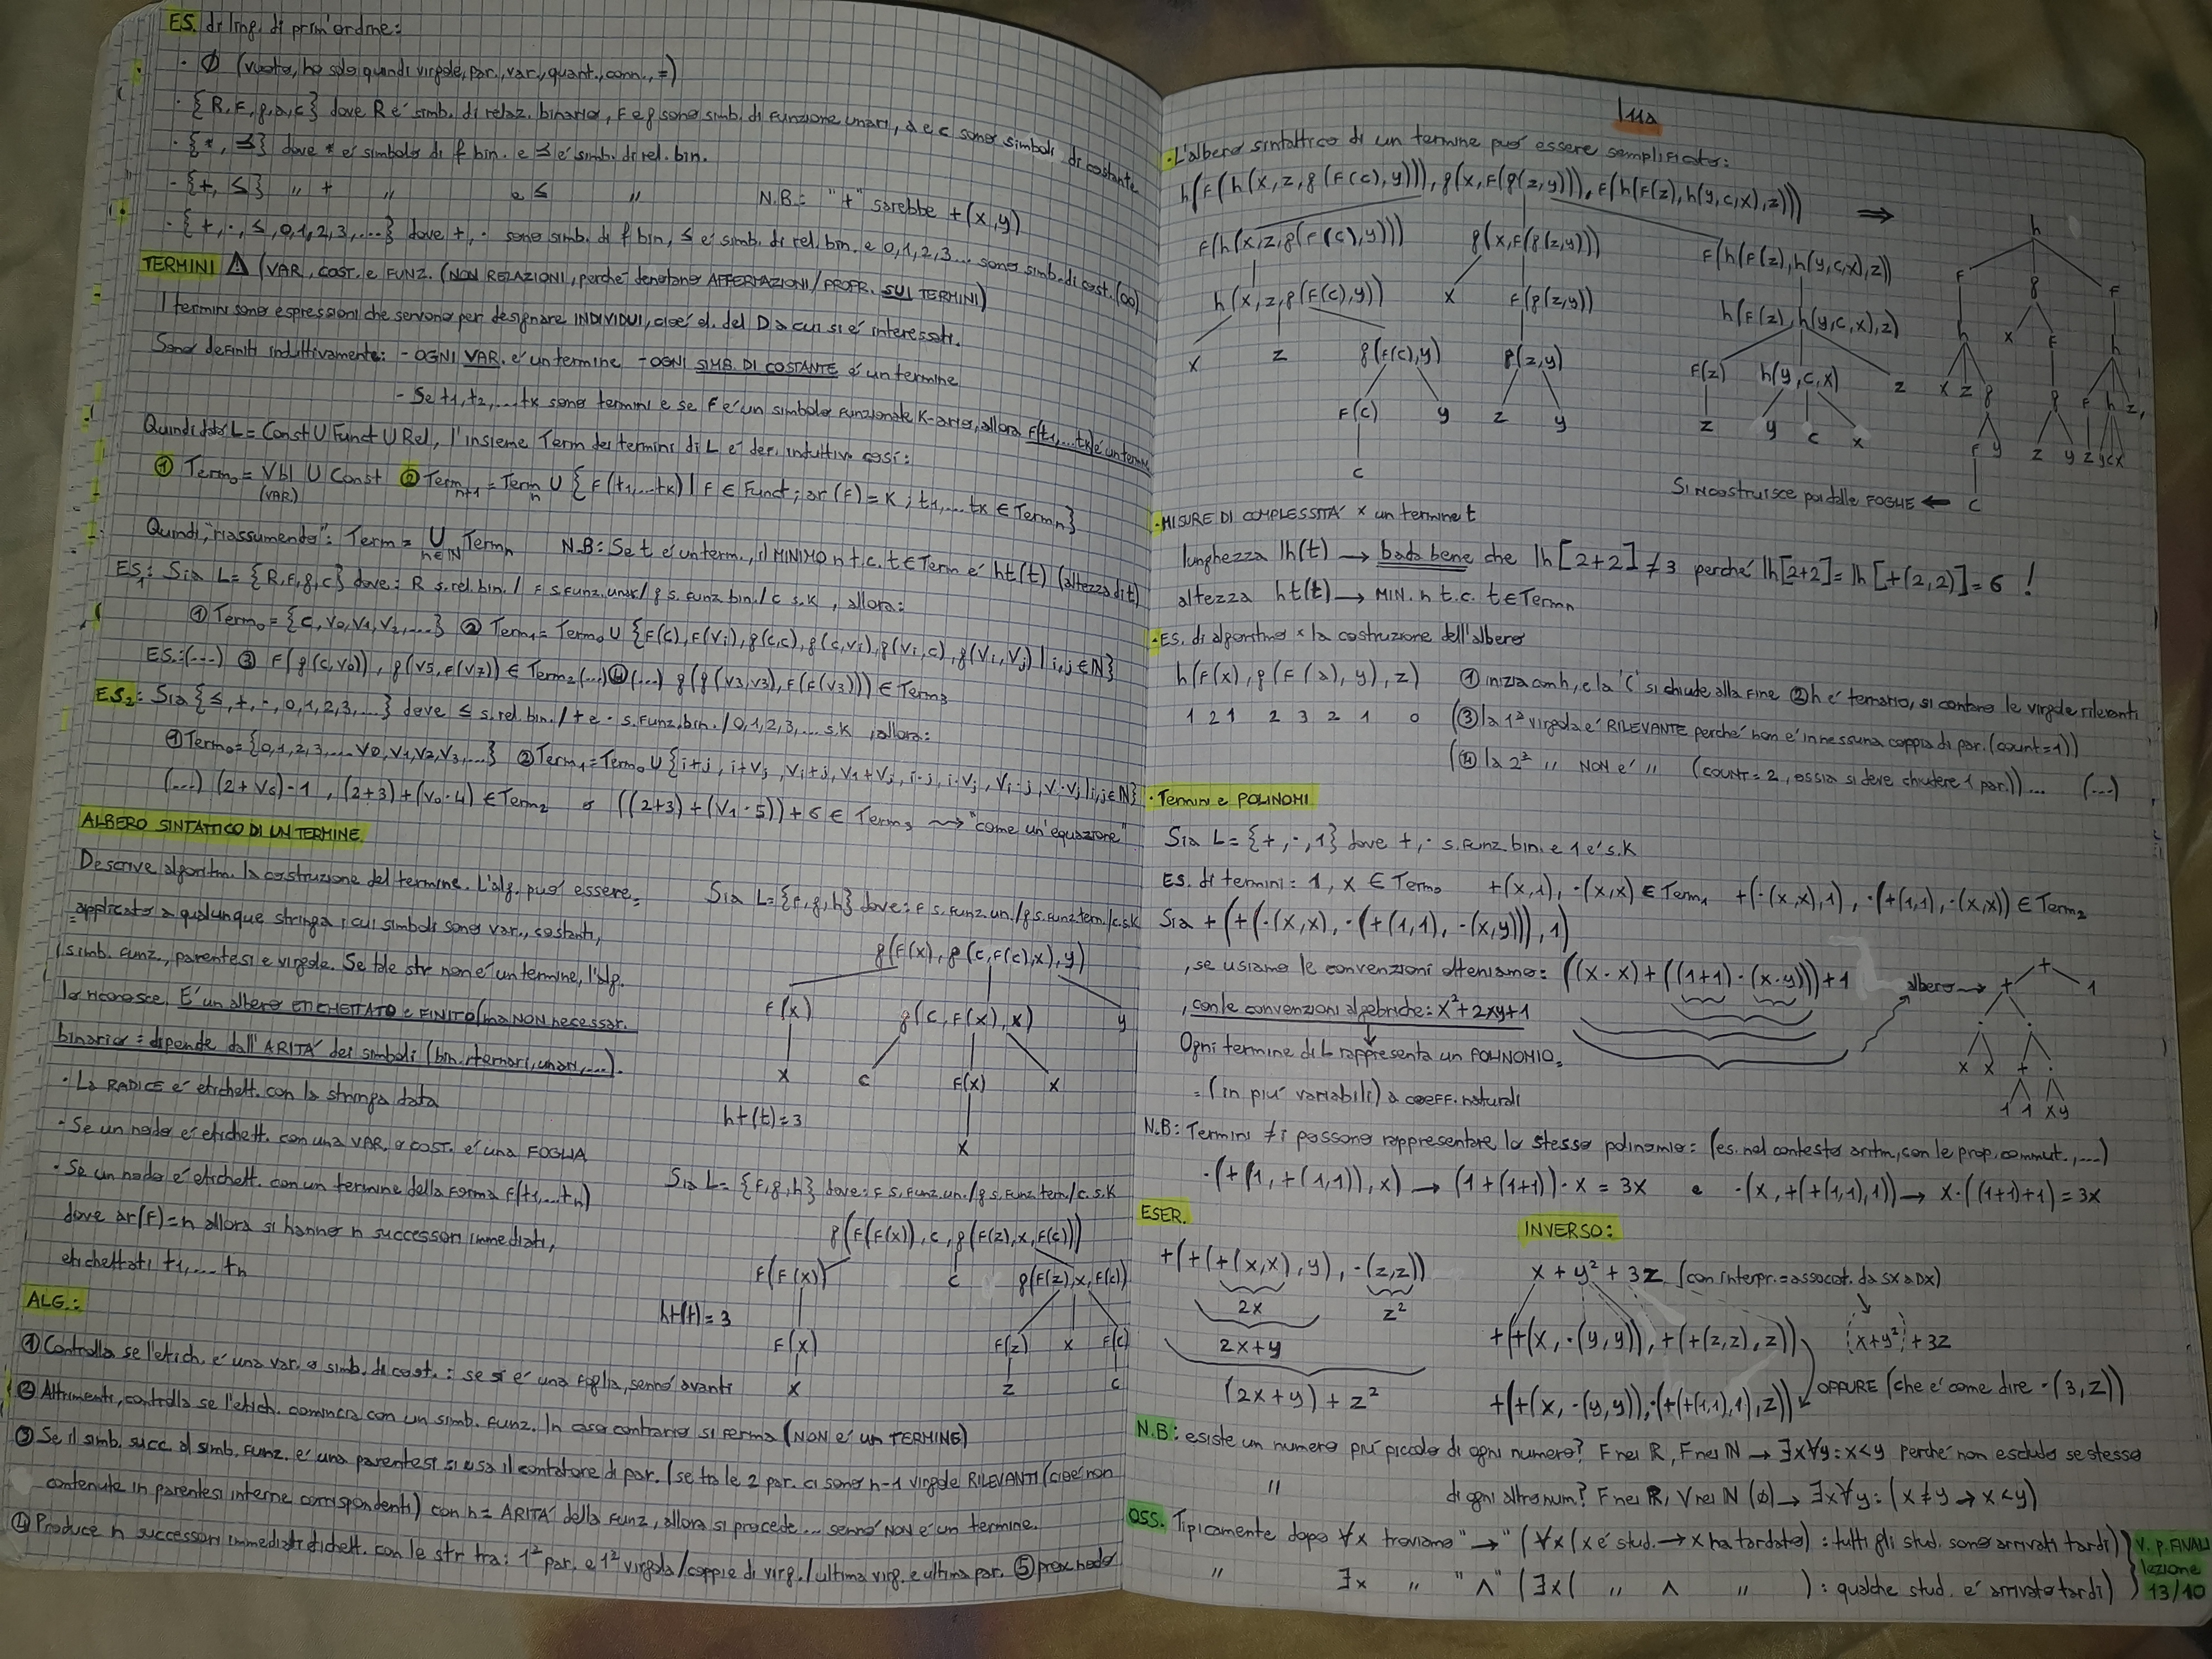 ES. di ling. di prim'ordine:
· Ø (vuoto, ho solo quindi virgole, par., var., quant., conn., =)
· {R,F,g,a,c} dove R é simb. di relaz. binario, F e g sono simb. di funzione unari, a e c sono simboli di costante
· {*, ≤} dove * é simbolo di f bin. e ≤ é simb. di rel. bin.
- {+, ≤} " + " e ≤ " N.B.: "+" sarebbe +(x,y)
· {+,·,≤,0,1,2,3,...} dove +,· sono simb. di f bin, ≤ é simb. di rel. bin. e 0,1,2,3... sono simb. di cost. (∞)
TERMINI ⚠ (VAR, COST. e FUNZ. (NON RELAZIONI, perché denotano AFFERMAZIONI/PROPR. SUI TERMINI)
I termini sono espressioni che servono per designare INDIVIDUI, cioé el. del D a cui si é interessati.
Sono definiti induttivamente: - OGNI VAR. é un termine - OGNI SIMB. DI COSTANTE é un termine
- Se t1,t2,...tk sono termini e se F é un simbolo funzionale K-ario, allora F(t1,...tk) é un term.
Quindi dato L = Const U Funct U Rel, l'insieme Term dei termini di L é def. induttivo così:
① Term0 = Vbl U Const ② Termn+1 = Termn U {F(t1,...tk) | F ∈ Funct; ar(F) = K; t1,...tk ∈ Termn}
(VAR)
Quindi, "riassumendo": Term = U n∈N Termn N.B: Se t é un term., il MINIMO n t.c. t ∈ Term é ht(t) (altezza di t)
ES1: Sia L = {R,F,g,c} dove: R s.rel.bin. / F s.funz.unar/ g s.funz.bin./ c s.K, allora:
① Term0 = {c, v0,v1,v2,...} ② Term1 = Term0 U {F(c), F(vi), g(c,c), g(c,vi), g(vi,c), g(vi,vj) | i,j ∈ N}
ES.:(...) ③ F(g(c,v0)), g(v5,F(v7)) ∈ Term2 (...) ④ (...) g(g(v3,v3), F(F(v3))) ∈ Term3
ES2: Sia {≤,+,·,0,1,2,3,...} dove ≤ s.rel.bin./ + e · s.funz.bin. / 0,1,2,3,... s.K, allora:
① Term0 = {0,1,2,3,... v0,v1,v2,v3,...} ② Term1 = Term0 U {i+j, i+vj, vi+j, v1+vj, i·j, i·vj, vi·j, v·vj | i,j ∈ N}
(...) (2+v6)·1, (2+3)+(v0·4) ∈ Term2 o ((2+3)+(v1·5))+6 ∈ Term3 ⇝ "come un'equazione"
ALBERO SINTATTICO DI UN TERMINE
Descrive algoritm. la costruzione del termine. L'alg. può essere
applicato a qualunque stringa i cui simboli sono var., costanti,
simb. funz., parentesi e virgole. Se tale str non é un termine, l'alg.
lo riconosce. É un albero ETICHETTATO e FINITO (ma NON necessar.
binario: dipende dall'ARITÀ dei simboli (bin., ternari, unari,...).
· La RADICE é etichett. con la stringa data
· Se un nodo é etichett. con una VAR. o COST. é una FOGLIA
· Se un nodo é etichett. con un termine della forma F(t1,...tn)
dove ar(F)=n allora si hanno n successori immediati,
etichettati t1,...tn
Sia L = {F,g,h} dove: F s.funz.un./g s.funz.tern./c.s.K
g(F(x), g(c,F(c),x),y)
F(x) g(c,F(x),x) y
x c F(x) x
ht(t)=3
x
Sia L = {F,g,h} dove: F s.funz.un./g s.funz.tern./c.s.K
g(F(F(x)),c,g(F(z),x,F(c)))
F(F(x)) c g(F(z),x,F(c))
ht(t)=3
F(x) F(z) x F(c)
x z c
ALG.:
① Controlla se l'etich. é una var. o simb. di cost.: se sì é una foglia, sennò avanti
② Altrimenti, controlla se l'etich. comincia con un simb. funz. In caso contrario si ferma (NON é un TERMINE)
③ Se il simb. succ. al simb. funz. é una parentesi si usa il contatore di par. (se tra le 2 par. ci sono n-1 virgole RILEVANTI (cioé non
contenute in parentesi interne corrispondenti) con n = ARITÀ della funz, allora si procede... sennò NON é un termine.
④ Produce n successori immediati etichett. con le str tra: 1ª par. e 1ª virgola/coppie di virg./ultima virg. e ultima par. ⑤ prox nodo
· L'albero sintattico di un termine può essere semplificato:
h(F(h(x,z,g(F(c),y))), g(x,F(g(z,y))), F(h(F(z),h(y,c,x),z))) ⇒
F(h(x,z,g(F(c),y))) g(x,F(g(z,y))) F(h(F(z),h(y,c,x),z))
h(x,z,g(F(c),y)) x F(g(z,y)) h(F(z),h(y,c,x),z)
x z g(F(c),y) g(z,y) F(z) h(y,c,x) z
F(c) y z y z y c x
c
h
F g F
h x F h
x z g g F h z,
F y z y z y c x
c
Si ricostruisce poi dalle FOGLIE ←
· MISURE DI COMPLESSITÀ x un termine t
lunghezza lh(t) → bada bene che lh[2+2] ≠ 3 perché lh[2+2] = lh[+(2,2)] = 6 !
altezza ht(t) → MIN. n t.c. t ∈ Termn
· ES. di algoritmo x la costruzione dell'albero
h(F(x),g(F(a),y),z) ① inizia con h, e la '(' si chiude alla fine ② h é ternario, si contano le virgole rilevanti
1 2 1 2 3 2 1 0 (③ la 1ª virgola é RILEVANTE perché non é in nessuna coppia di par. (count=1))
(④ la 2ª " NON é " (COUNT=2, ossia si deve chiudere 1 par.))... (...)
· Termini e POLINOMI
Sia L = {+,·,1} dove +,· s.funz.bin. e 1 é s.K
ES. di termini: 1, x ∈ Term0 +(x,1), ·(x,x) ∈ Term1 +(·(x,x),1), ·(+(1,1),·(x,x)) ∈ Term2
Sia +(+(·(x,x), ·(+(1,1), ·(x,y))),1)
, se usiamo le convenzioni otteniamo: ((x·x)+((1+1)·(x·y)))+1
albero →
, con le convenzioni algebriche: x²+2xy+1
Ogni termine di L rappresenta un POLINOMIO
(in più variabili) a coeff. naturali
+
+ 1
· ·
x x + ·
1 1 x y
N.B: Termini ≠i possono rappresentare lo stesso polinomio: (es. nel contesto aritm., con le prop. commut.,...)
·(+(1,+(1,1)),x) → (1+(1+1))·x = 3x e ·(x,+(+(1,1),1)) → x·((1+1)+1) = 3x
ESER.
+(+(+(x,x),y),·(z,z))
2x z²
2x+y
(2x+y)+z²
INVERSO:
x + y² + 3z (con interpr. = associat. da SX a DX)
+(+(x,·(y,y)),+(+(z,z),z)) (x+y²)+3z
OPPURE (che é come dire ·(3,z))
+(+(x,·(y,y)),·(+(+(1,1),1),z))
N.B: esiste un numero più piccolo di ogni numero? F nei R, F nei N → ∃x∀y: x<y perché non escludo se stesso
" di ogni altro num? F nei R, V nei N (0) → ∃x∀y: (x≠y → x<y)
OSS. Tipicamente dopo ∀x troviamo "→" (∀x (x é stud. → x ha tardato): tutti gli stud. sono arrivati tardi)
" ∃x " "∧" (∃x( " ∧ " ): qualche stud. é arrivato tardi)
V. p. FINALI
lezione
13/10